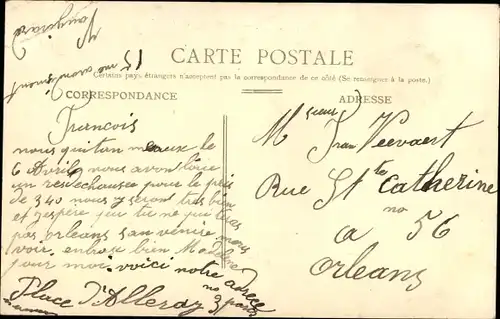 Vaugirard
15 me arondisment
CARTE POSTALE
Certains pays étrangers n'acceptent pas la correspondance de ce côté (Se renseigner à la poste.)
CORRESPONDANCE
ADRESSE
Francois
nous quiton meaux le
6 Avril nous avon loue
un resdechausee pour le prix
de 340 nous y serons tres bien
et jespere que tu ne qui
pas orleans san venire nous
voir. enbrase bien Madelene
pour moi. voici notre adrece
Place d'Alleray no 3 paris
Msieur
Jean Veevaert
Rue Ste Catherine
no 56
a
Orleans